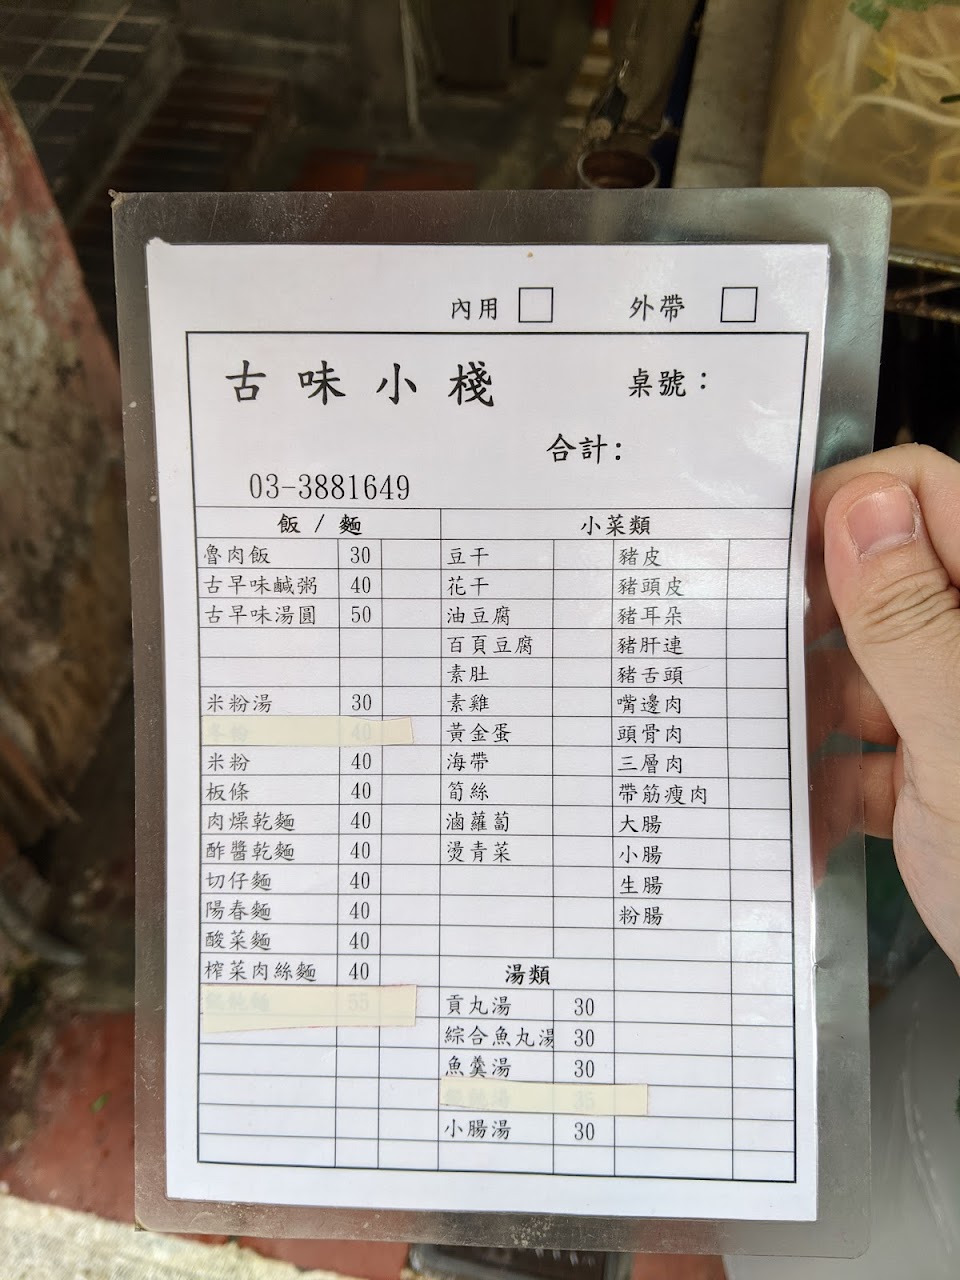 內用 □ 外帶 □
古味小棧 桌號：
合計：
03-3881649
飯 / 麵 小菜類
魯肉飯 30 豆干 豬皮
古早味鹹粥 40 花干 豬頭皮
古早味湯圓 50 油豆腐 豬耳朵
百頁豆腐 豬肝連
素肚 豬舌頭
米粉湯 30 素雞 嘴邊肉
冬粉 40 黃金蛋 頭骨肉
米粉 40 海帶 三層肉
板條 40 筍絲 帶筋瘦肉
肉燥乾麵 40 滷蘿蔔 大腸
酢醬乾麵 40 燙青菜 小腸
切仔麵 40 生腸
陽春麵 40 粉腸
酸菜麵 40
榨菜肉絲麵 40 湯類
餛飩麵 55 貢丸湯 30
綜合魚丸湯 30
魚羹湯 30
餛飩湯 35
小腸湯 30